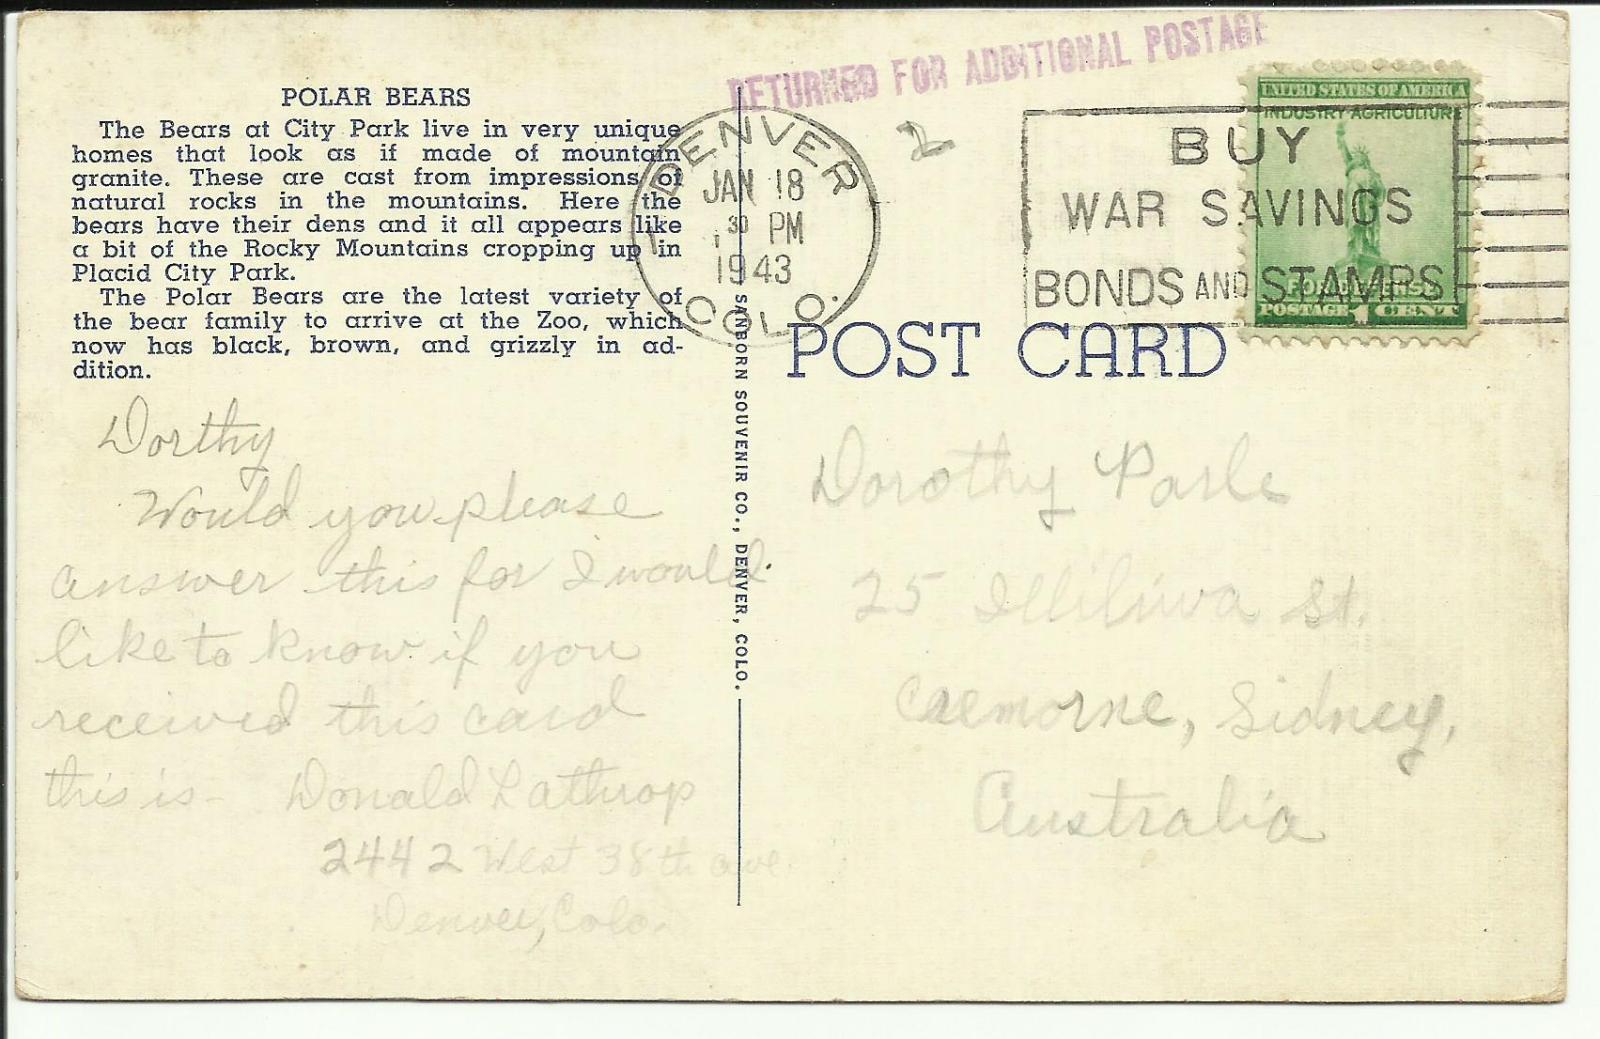 RETURNED FOR ADDITIONAL POSTAGE
POLAR BEARS
The Bears at City Park live in very unique
homes that look as if made of mountain
granite. These are cast from impressions of
natural rocks in the mountains. Here the
bears have their dens and it all appears like
a bit of the Rocky Mountains cropping up in
Placid City Park.
The Polar Bears are the latest variety of
the bear family to arrive at the Zoo, which
now has black, brown, and grizzly in ad-
dition.
DENVER
JAN 18
30 PM
1943
COLO.
2
BUY
WAR SAVINGS
BONDS AND STAMPS
UNITED STATES OF AMERICA
INDUSTRY AGRICULTURE
FOR DEFENSE
POSTAGE 1 CENT
SANBORN SOUVENIR CO., DENVER, COLO.
POST CARD
Dorthy
Would you please
answer this for I would
like to know if you
received this card
this is - Donald Lathrop
2442 West 38th ave.
Denver, Colo.
Dorothy Parle
25 Illiliwa St.
Cremorne, Sidney,
Australia